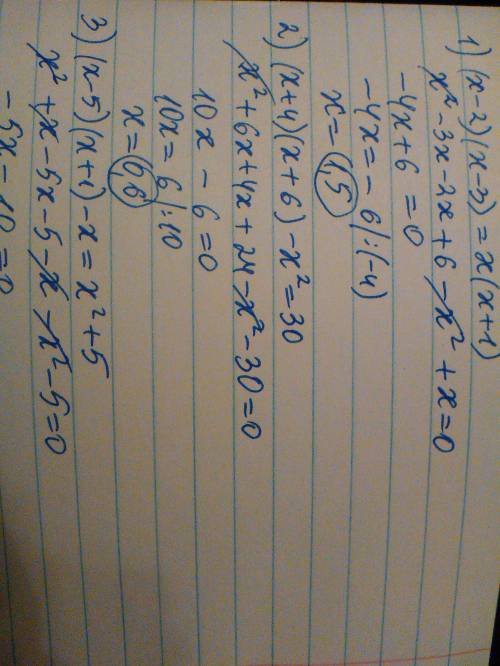 1) (x-2)(x-3) = x(x+1)
x² - 3x - 2x + 6 - x² + x = 0
-4x + 6 = 0
-4x = -6 |:(-4)
x = 1,5
2) (x+4)(x+6) - x² = 30
x² + 6x + 4x + 24 - x² - 30 = 0
10x - 6 = 0
10x = 6 |:10
x = 0,6
3) (x-5)(x+1) - x = x² + 5
x² + x - 5x - 5 - x - x² - 5 = 0
-5x - 10 = 0